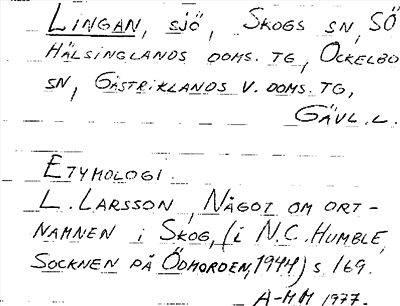 LINGAN, SJÖ, SKOGS SN, SÖ
HÄLSINGLANDS DOMS. TG, OCKELBO
SN, GÄSTRIKLANDS V. DOMS. TG,
GÄVL. L.
ETYMOLOGI.
L. LARSSON, NÅGOT OM ORT-
NAMNEN I SKOG, (I N.C. HUMBLE,
SOCKNEN PÅ ÖDMORDEN, 1944) S. 169.
A-MM 1977.